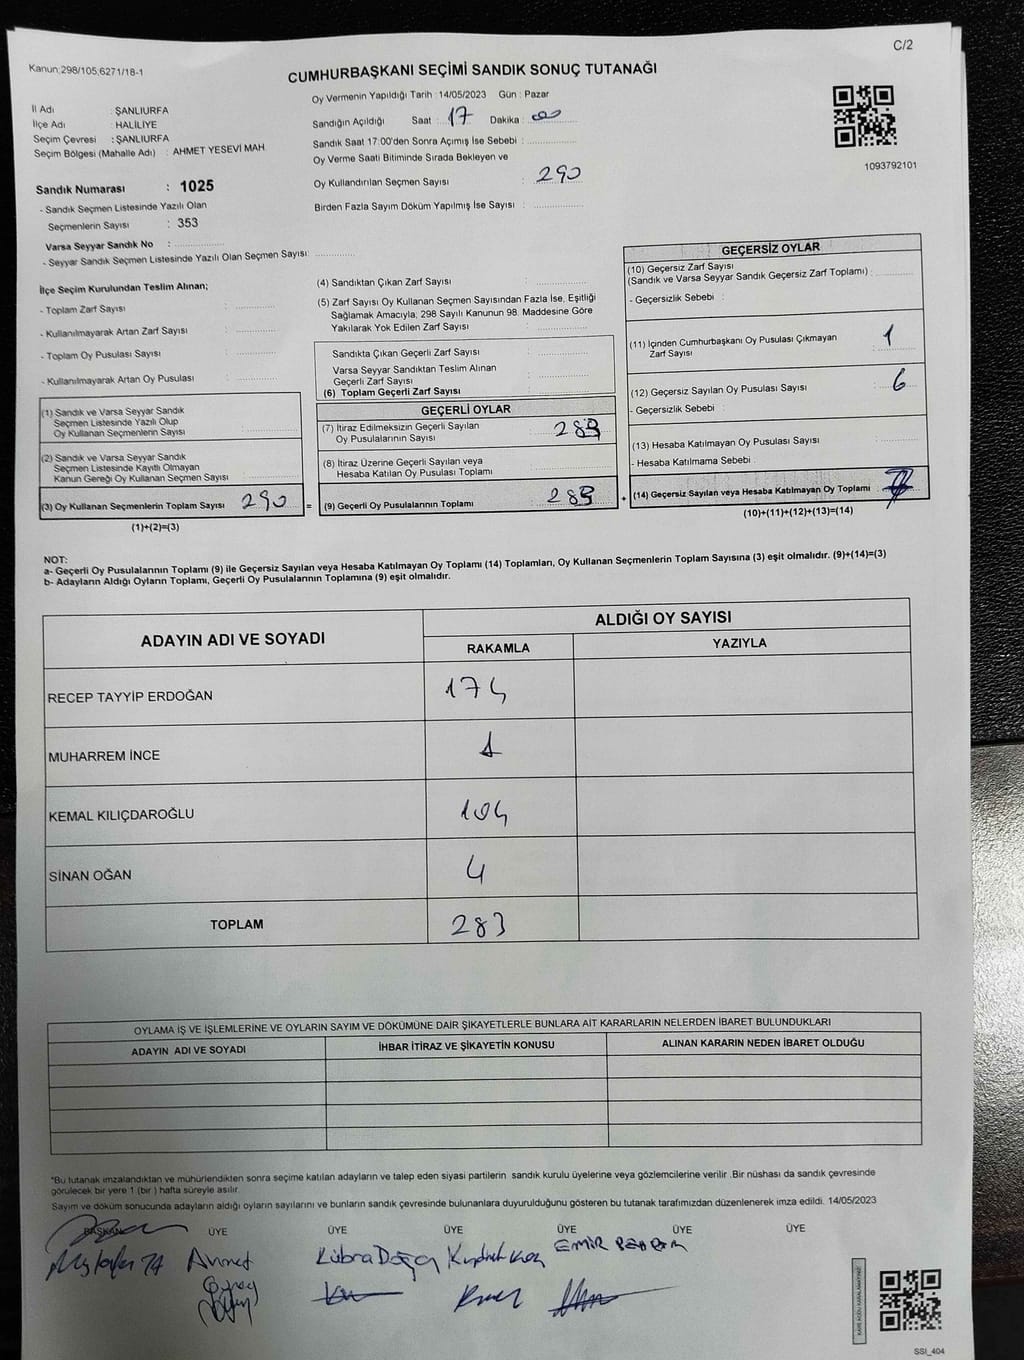 C/2
Kanun:298/105;6271/18-1
CUMHURBAŞKANI SEÇİMİ SANDIK SONUÇ TUTANAĞI
Oy Vermenin Yapıldığı Tarih : 14/05/2023 Gün : Pazar
İl Adı : ŞANLIURFA
İlçe Adı : HALİLİYE
Seçim Çevresi : ŞANLIURFA
Seçim Bölgesi (Mahalle Adı) : AHMET YESEVİ MAH
Sandık Numarası : 1025
- Sandık Seçmen Listesinde Yazılı Olan
Seçmenlerin Sayısı : 353
Varsa Seyyar Sandık No :
- Seyyar Sandık Seçmen Listesinde Yazılı Olan Seçmen Sayısı:
Sandığın Açıldığı Saat : 17 Dakika : 00
Sandık Saat 17:00'den Sonra Açımış İse Sebebi :
Oy Verme Saati Bitiminde Sırada Bekleyen ve
Oy Kullandırılan Seçmen Sayısı : 290
Birden Fazla Sayım Döküm Yapılmış İse Sayısı :
1093792101
İlçe Seçim Kurulundan Teslim Alınan;
- Toplam Zarf Sayısı :
- Kullanılmayarak Artan Zarf Sayısı :
- Toplam Oy Pusulası Sayısı :
- Kullanılmayarak Artan Oy Pusulası :
(1) Sandık ve Varsa Seyyar Sandık
Seçmen Listesinde Yazılı Olup
Oy Kullanan Seçmenlerin Sayısı :
(2) Sandık ve Varsa Seyyar Sandık
Seçmen Listesinde Kayıtlı Olmayan
Kanun Gereği Oy Kullanan Seçmen Sayısı :
(3) Oy Kullanan Seçmenlerin Toplam Sayısı : 290
(1)+(2)=(3)
=
(4) Sandıktan Çıkan Zarf Sayısı :
(5) Zarf Sayısı Oy Kullanan Seçmen Sayısından Fazla İse, Eşitliği
Sağlamak Amacıyla; 298 Sayılı Kanunun 98. Maddesine Göre
Yakılarak Yok Edilen Zarf Sayısı :
Sandıkta Çıkan Geçerli Zarf Sayısı :
Varsa Seyyar Sandıktan Teslim Alınan
Geçerli Zarf Sayısı :
(6) Toplam Geçerli Zarf Sayısı :
GEÇERLİ OYLAR
(7) İtiraz Edilmeksizin Geçerli Sayılan
Oy Pusulalarının Sayısı : 283
(8) İtiraz Üzerine Geçerli Sayılan veya
Hesaba Katılan Oy Pusulası Toplamı :
(9) Geçerli Oy Pusulalarının Toplamı : 283
+
GEÇERSİZ OYLAR
(10) Geçersiz Zarf Sayısı
(Sandık ve Varsa Seyyar Sandık Geçersiz Zarf Toplamı) :
- Geçersizlik Sebebi :
(11) İçinden Cumhurbaşkanı Oy Pusulası Çıkmayan
Zarf Sayısı : 1
(12) Geçersiz Sayılan Oy Pusulası Sayısı : 6
- Geçersizlik Sebebi :
(13) Hesaba Katılmayan Oy Pusulası Sayısı :
- Hesaba Katılmama Sebebi :
(14) Geçersiz Sayılan veya Hesaba Katılmayan Oy Toplamı : 7
(10)+(11)+(12)+(13)=(14)
NOT:
a- Geçerli Oy Pusulalarının Toplamı (9) ile Geçersiz Sayılan veya Hesaba Katılmayan Oy Toplamı (14) Toplamları, Oy Kullanan Seçmenlerin Toplam Sayısına (3) eşit olmalıdır. (9)+(14)=(3)
b- Adayların Aldığı Oyların Toplamı, Geçerli Oy Pusulalarının Toplamına (9) eşit olmalıdır.
ADAYIN ADI VE SOYADI ALDIĞI OY SAYISI
RAKAMLA YAZIYLA
RECEP TAYYİP ERDOĞAN 174
MUHARREM İNCE 1
KEMAL KILIÇDAROĞLU 104
SİNAN OĞAN 4
TOPLAM 283
OYLAMA İŞ VE İŞLEMLERİNE VE OYLARIN SAYIM VE DÖKÜMÜNE DAİR ŞİKAYETLERLE BUNLARA AİT KARARLARIN NELERDEN İBARET BULUNDUKLARI
ADAYIN ADI VE SOYADI İHBAR İTİRAZ VE ŞİKAYETİN KONUSU ALINAN KARARIN NEDEN İBARET OLDUĞU
"Bu tutanak imzalandıktan ve mühürlendikten sonra seçime katılan adayların ve talep eden siyasi partilerin sandık kurulu üyelerine veya gözlemcilerine verilir .Bir nüshası da sandık çevresinde
görülecek bir yere 1 (bir ) hafta süreyle asılır.
Sayım ve döküm sonucunda adayların aldığı oyların sayılarını ve bunların sandık çevresinde bulunanlara duyurulduğunu gösteren bu tutanak tarafımızdan düzenlenerek imza edildi. 14/05/2023
BAŞKAN ÜYE ÜYE ÜYE ÜYE ÜYE ÜYE
Ahmet Kübra Doğan EMİR
SSI_404